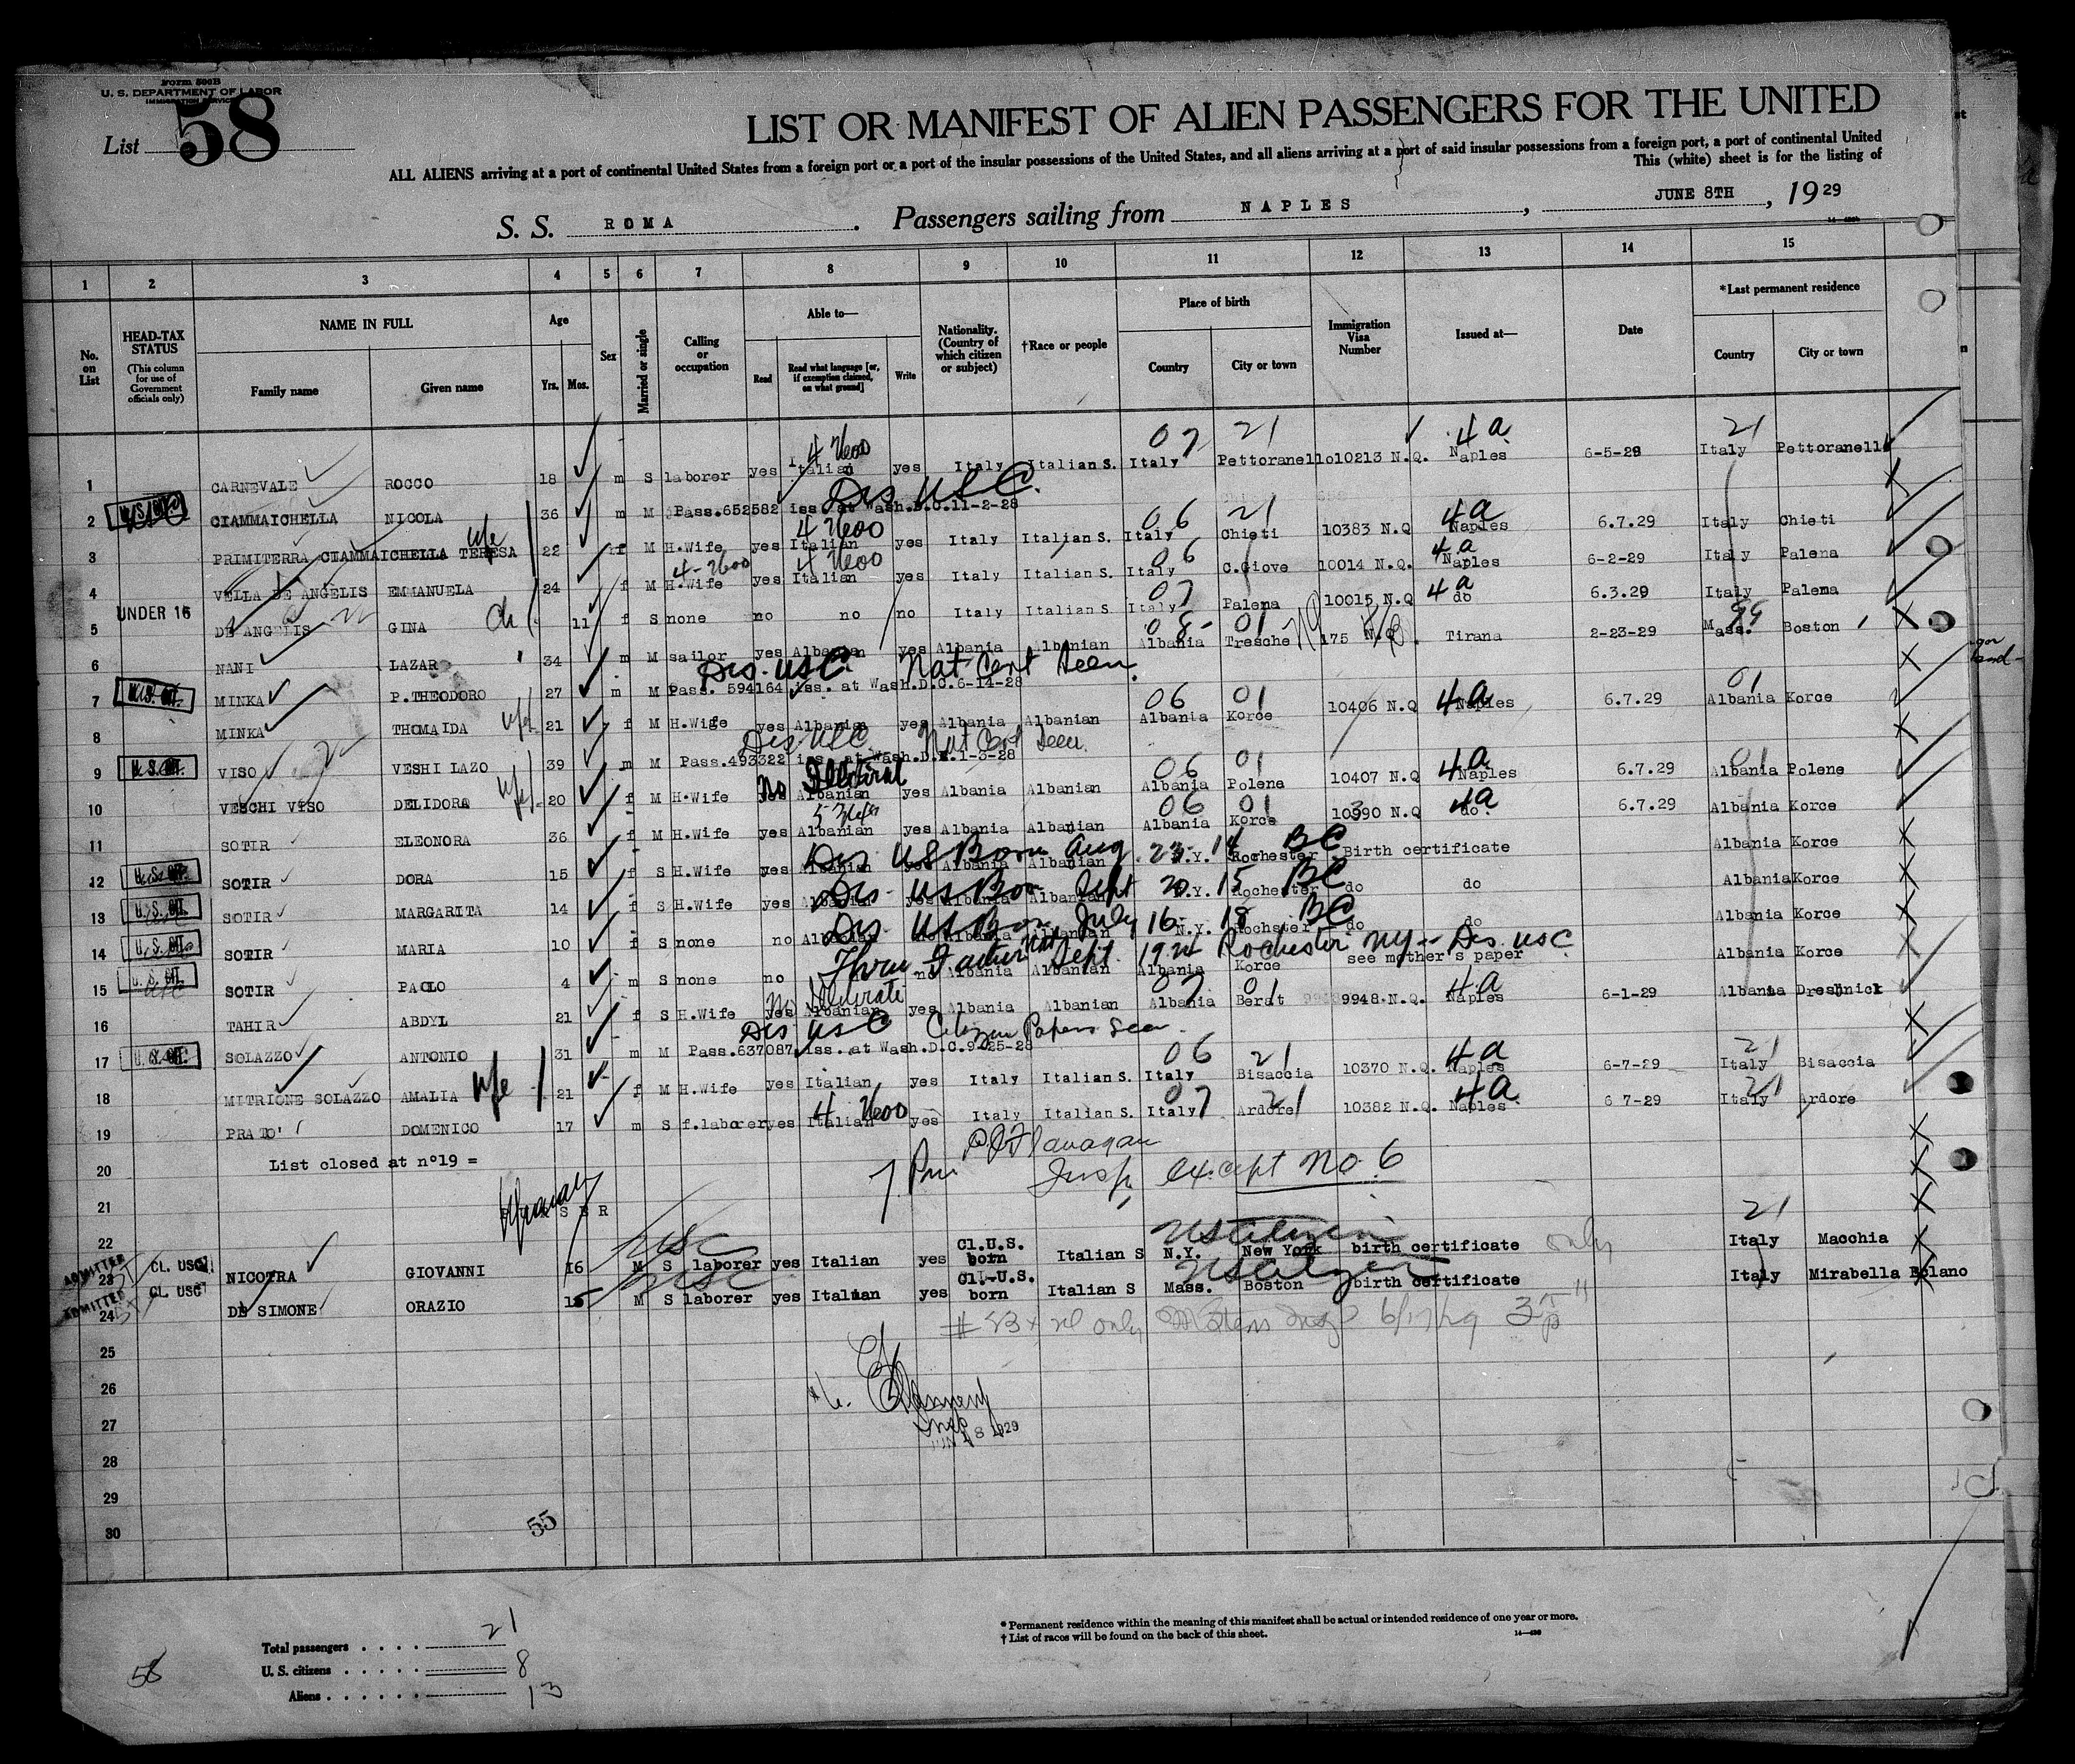 Form 500B
U. S. DEPARTMENT OF LABOR
IMMIGRATION SERVICE
List 58
LIST OR MANIFEST OF ALIEN PASSENGERS FOR THE UNITED
ALL ALIENS arriving at a port of continental United States from a foreign port or a port of the insular possessions of the United States, and all aliens arriving at a port of said insular possessions from a foreign port, a port of continental United
This (white) sheet is for the listing of
S. S. ROMA. Passengers sailing from NAPLES, JUNE 8TH, 1929
1 2 3 4 5 6 7 8 9 10 11 12 13 14 15
No. on List
HEAD-TAX STATUS (This column for use of Government officials only)
NAME IN FULL
Family name
Given name
Age
Yrs. Mos.
Sex
Married or single
Calling or occupation
Able to—
Read
Read what language [or, if exemption claimed, on what ground]
Write
Nationality. (Country of which citizen or subject)
†Race or people
Place of birth
Country
City or town
Immigration Visa Number
Issued at—
Date
*Last permanent residence
Country
City or town
4 07 21 4a 21
1 CARNEVALE ROCCO 18 m S laborer yes Italian yes Italy Italian S. Italy Pettoranello 10213 N.Q. Naples 6-5-29 Italy Pettoranell
Dis USC
2 U.S. CIT. CIAMMAICHELLA NICOLA 36 m M Pass.652582 iss. at Wash.D.C.11-2-28
4 06 21 4a
3 PRIMITERRA CIAMMAICHELLA TERESA wife 22 f M H.Wife yes Italian yes Italy Italian S. Italy Chieti 10383 N.Q Naples 6.7.29 Italy Chieti
4 06 4a
4 VELLA DE ANGELIS EMMANUELA 24 f M H.Wife yes Italian yes Italy Italian S. Italy C.Giove 10014 N.Q. Naples 6-2-29 Italy Palena
07 4a
5 UNDER 16 DE ANGELIS GINA Ch 11 f S none no no no Italy Italian S. Italy Palena 10015 N.Q do 6.3.29 Italy Palena
08 01 99
6 NANI LAZAR 34 m M sailor yes Albanian yes Albania Albanian Albania Tresche 175 N.Q. Tirana 2-23-29 Mass. Boston
Dis. USC. Nat Cert Seen.
7 U.S. CIT. MINKA P.THEODORO 27 m M Pass. 594164 iss. at Wash.D.C.6-14-28
06 01 4a 01
8 MINKA THOMAIDA wife 21 f M H.Wife yes Albanian yes Albania Albanian Albania Korce 10406 N.Q Naples 6.7.29 Albania Korce
Dis USC Nat Cert Seen.
9 U.S. CIT. VISO VESHI LAZO 39 m M Pass.493322 iss. at Wash.D.C.1-3-28
No 06 01 4a 01
10 VESCHI VISO DELIDORA wife 20 f M H.Wife yes Albanian yes Albania Albanian Albania Polena 10407 N.Q Naples 6.7.29 Albania Polene
06 01 4a
11 SOTIR ELEONORA 36 f M H.Wife yes Albanian yes Albania Albanian Albania Korce 10390 N.Q do. 6.7.29 Albania Korce
Dis US Born Aug. 23- 14 BC
12 U.S. CIT. SOTIR DORA 15 f S H.Wife yes Albanian yes Albania Albanian N.Y. Rochester Birth certificate Albania Korce
Dis- US Born Sept 20 15 BC
13 U.S. CIT. SOTIR MARGARITA 14 f S H.Wife yes Albanian yes Albania Albanian N.Y. Rochester do do Albania Korce
Dis US Born July 16- 18 BC
14 U.S. CIT. SOTIR MARIA 10 f S none no Albanian no Albania Albanian N.Y. Rochester do do Albania Korce
Thru Father Nat Sept. 1924 Rochester NY - Dis. USC
15 U.S. CIT. SOTIR PAOLO 4 m S none no no Albania Albanian Albania Korce see mother's paper Albania Korce
No Illiterate 07 01 4a
16 TAHIR ABDYL 21 f S H.Wife yes Albanian yes Albania Albanian Albania Berat 9948.N.Q. Naples 6-1-29 Albania Dreshnick
Dis USC Citizen Papers Seen.
17 U.S. CIT. SOLAZZO ANTONIO 31 m M Pass.637087 iss. at Wash.D.C.9-25-28
06 21 4a 21
18 MITRIONE SOLAZZO AMALIA wife 21 f M H.Wife yes Italian yes Italy Italian S. Italy Bisaccia 10370 N.Q. Naples 6-7-29 Italy Bisaccia
4 07 21 4a 21
19 PRATO' DOMENICO 17 m S f.laborer yes Italian yes Italy Italian S. Italy Ardore 10382 N.Q. Naples 6 7-29 Italy Ardore
20 List closed at n°19 =
Flanagan
Insp. except No. 6
21 S E R
22
21
23 ADMITTED CL. USC NICOTRA GIOVANNI 16 M S laborer yes Italian yes Cl.U.S. born Italian S N.Y. New York birth certificate only Italy Macchia
USC US Citizen
24 ADMITTED CL. USC DE SIMONE ORAZIO 15 M S laborer yes Italian yes Cl.-U.S. born Italian S Mass. Boston birth certificate Italy Mirabella Eclano
USC US Citizen
25
26
Insp
27 JUN 18 1929
28
29
30
55
Total passengers 21
U. S. citizens 8
Aliens 13
* Permanent residence within the meaning of this manifest shall be actual or intended residence of one year or more.
† List of races will be found on the back of this sheet.